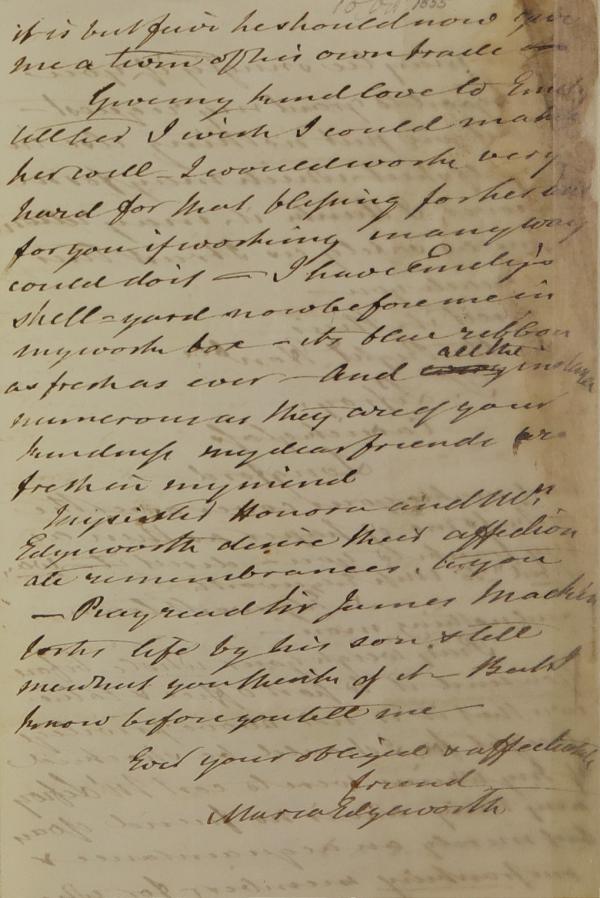 10 Oct 1835
it is but fair he should now give
me a turn of his own trade
Give my kind love to Emily
tell her I wish I could make
her well - I would work very
hard for that blessing for her and
for you if working many way
could do it — I have Emily's
shell-yard now before me in
my work box - its blue ribbon
as fresh as ever - And all the instances
numerous as they are of your
kindness my dear friends are
fresh in my mind
My sister Honora and Mrs
Edgeworth desire their affection
ate remembrances to you
— Pray read Sir James Mackin
toshs life by his son & tell
me what you think of it - But I
know before you tell me
Ever your obliged & affectionate
friend
Maria Edgeworth